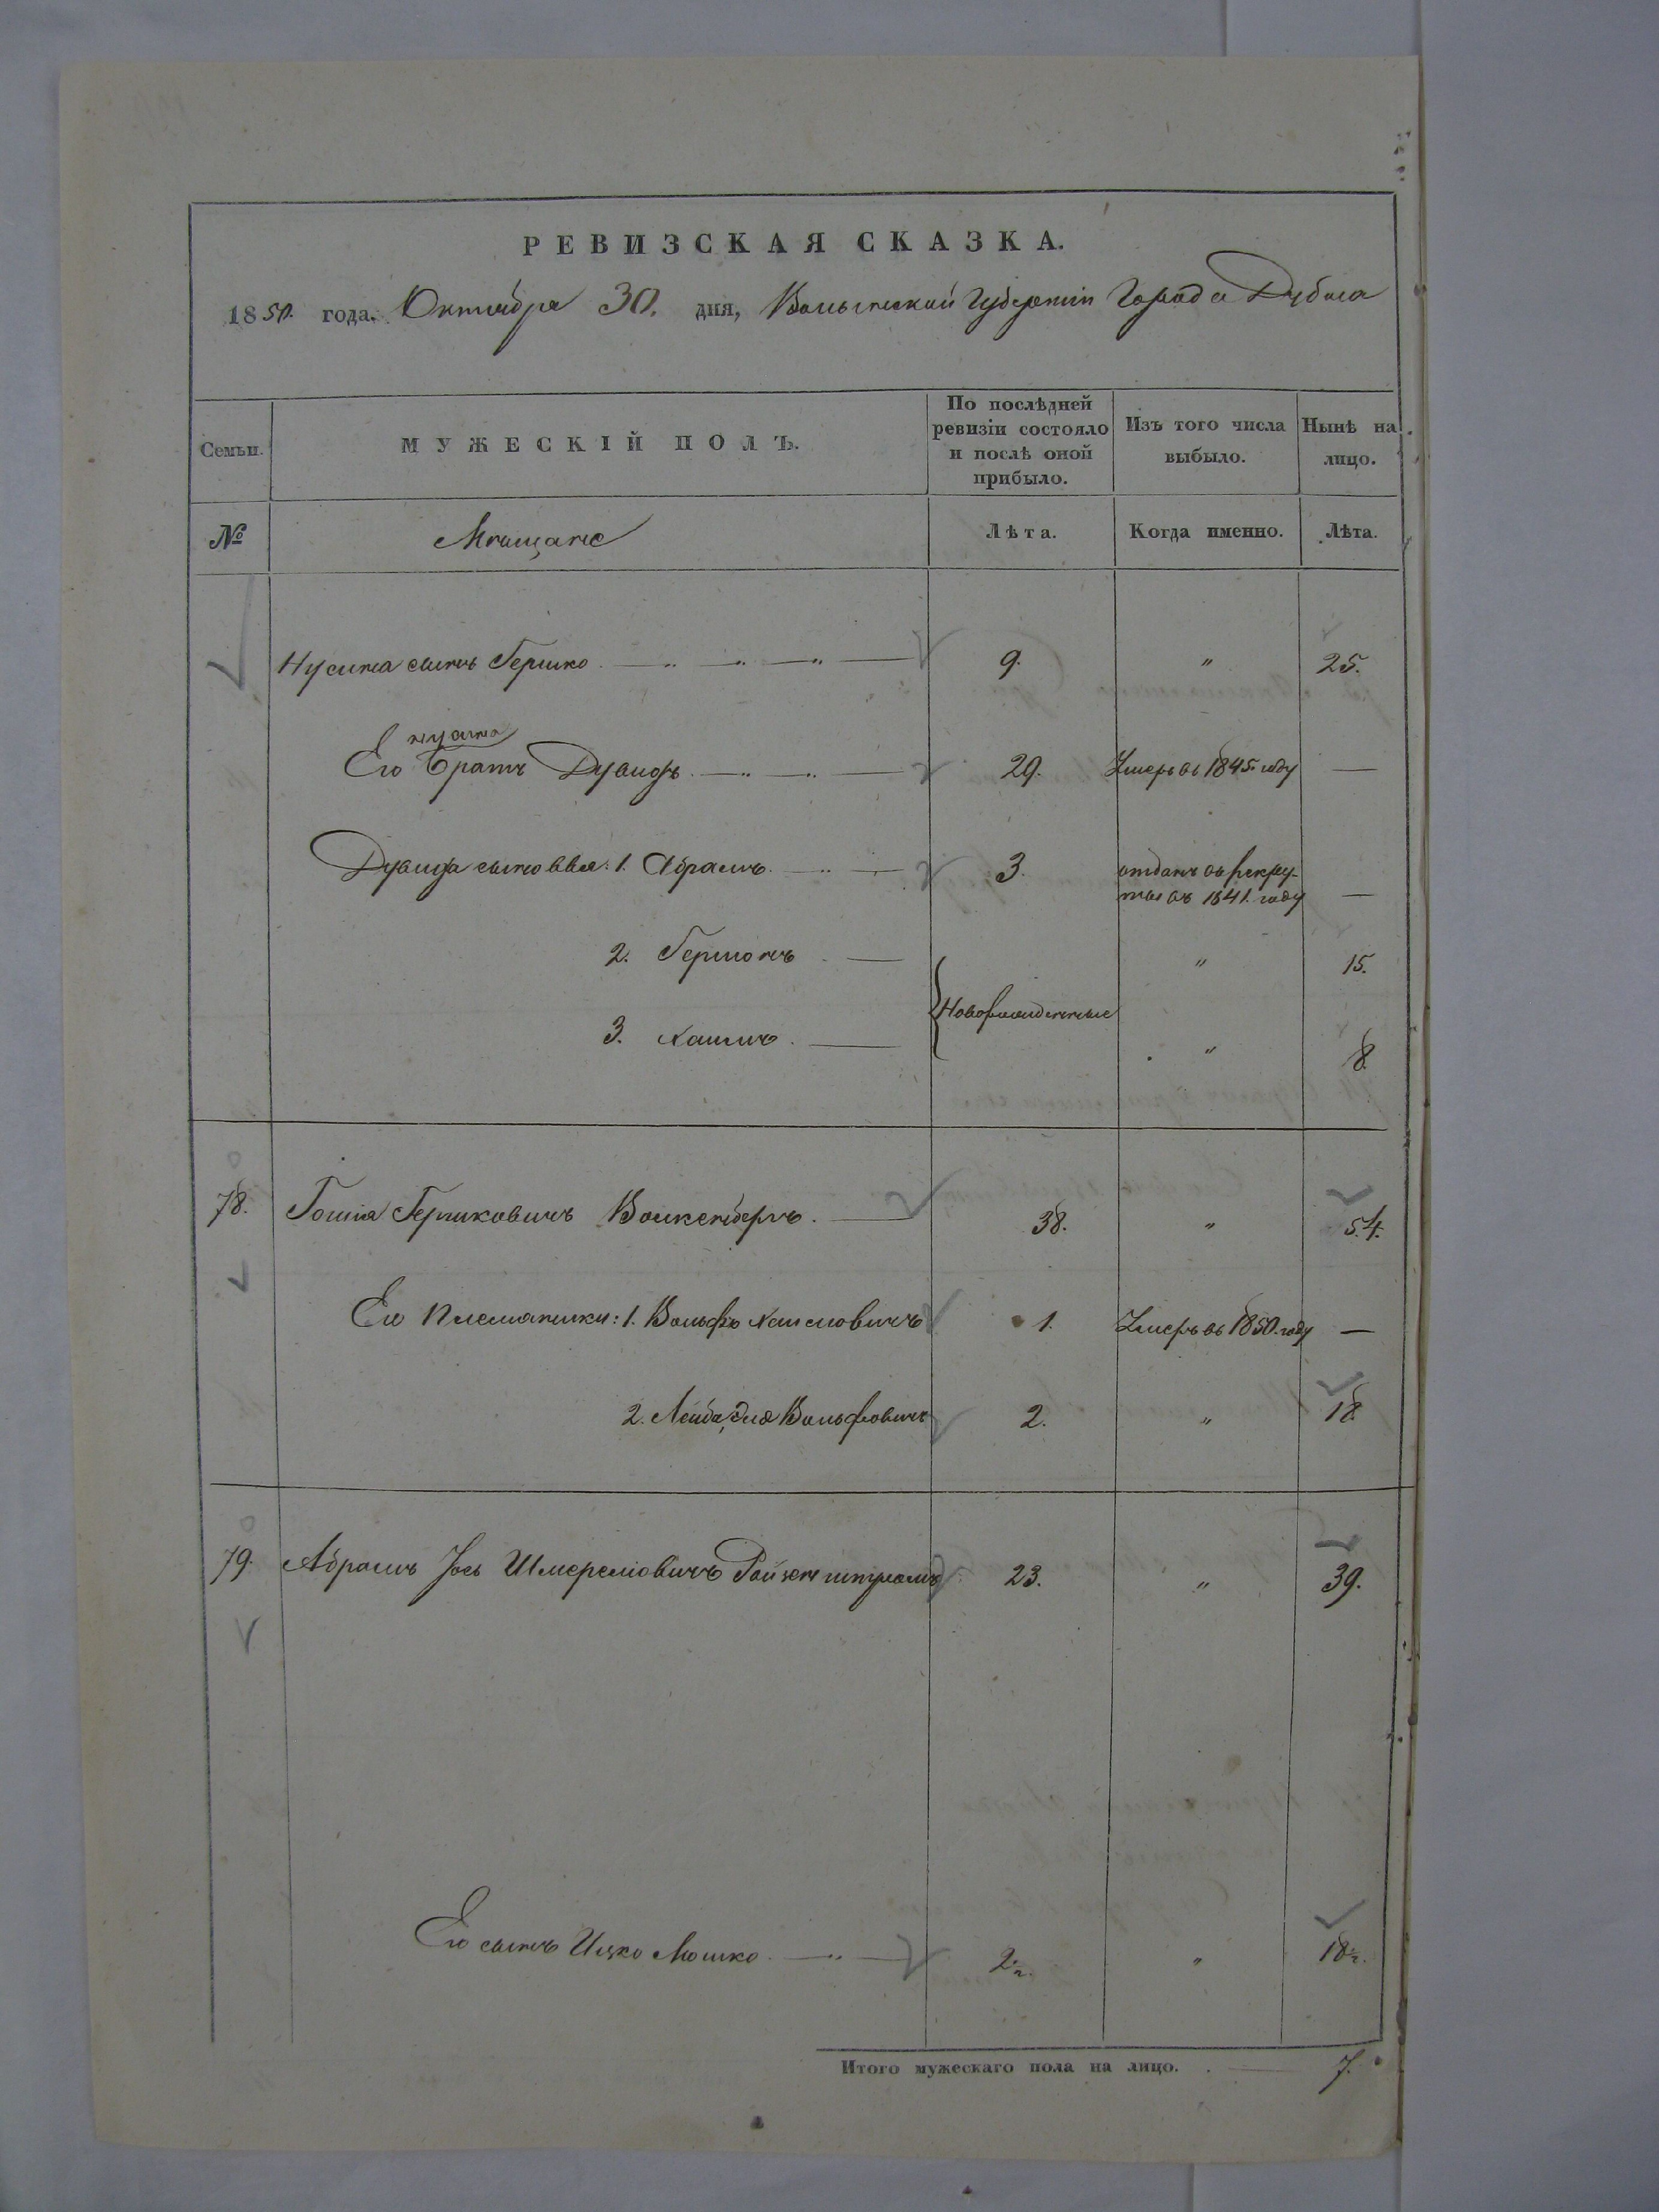 РЕВИЗСКАЯ СКАЗКА.
1850. года. Октября 30. дня, Волынской Губерніи Города Дубна
Семьи. МУЖЕСКІЙ ПОЛЪ. По послѣдней ревизіи состояло и послѣ оной прибыло. Изъ того числа выбыло. Нынѣ на лицо.
№ Мѣщане Лѣта. Когда именно. Лѣта.
Нусина сынъ Гершко 9. " 25.
нусина
Его братъ Дувидъ 29. Умеръ въ 1845. году —
Дувида сыновья: 1. Абрамъ 3. отданъ въ рекру-
ты въ 1841. году —
2. Гершонъ " 15.
Новорожденные
3. Хаимъ " 8
78. Гошіа Гершковичъ Волкенбергъ 38. " 54.
Его племянники: 1. Вольфъ Хаимовичъ 1. Умеръ въ 1850. году —
2. Лейба Эля Вольфовичъ 2. " 18
79. Абрамъ Іось Шмереліовичъ Ройзенштромъ 23. " 39.
Его сынъ Ицко Мошко 2. " 18.
Итого мужескаго пола на лицо. 7.